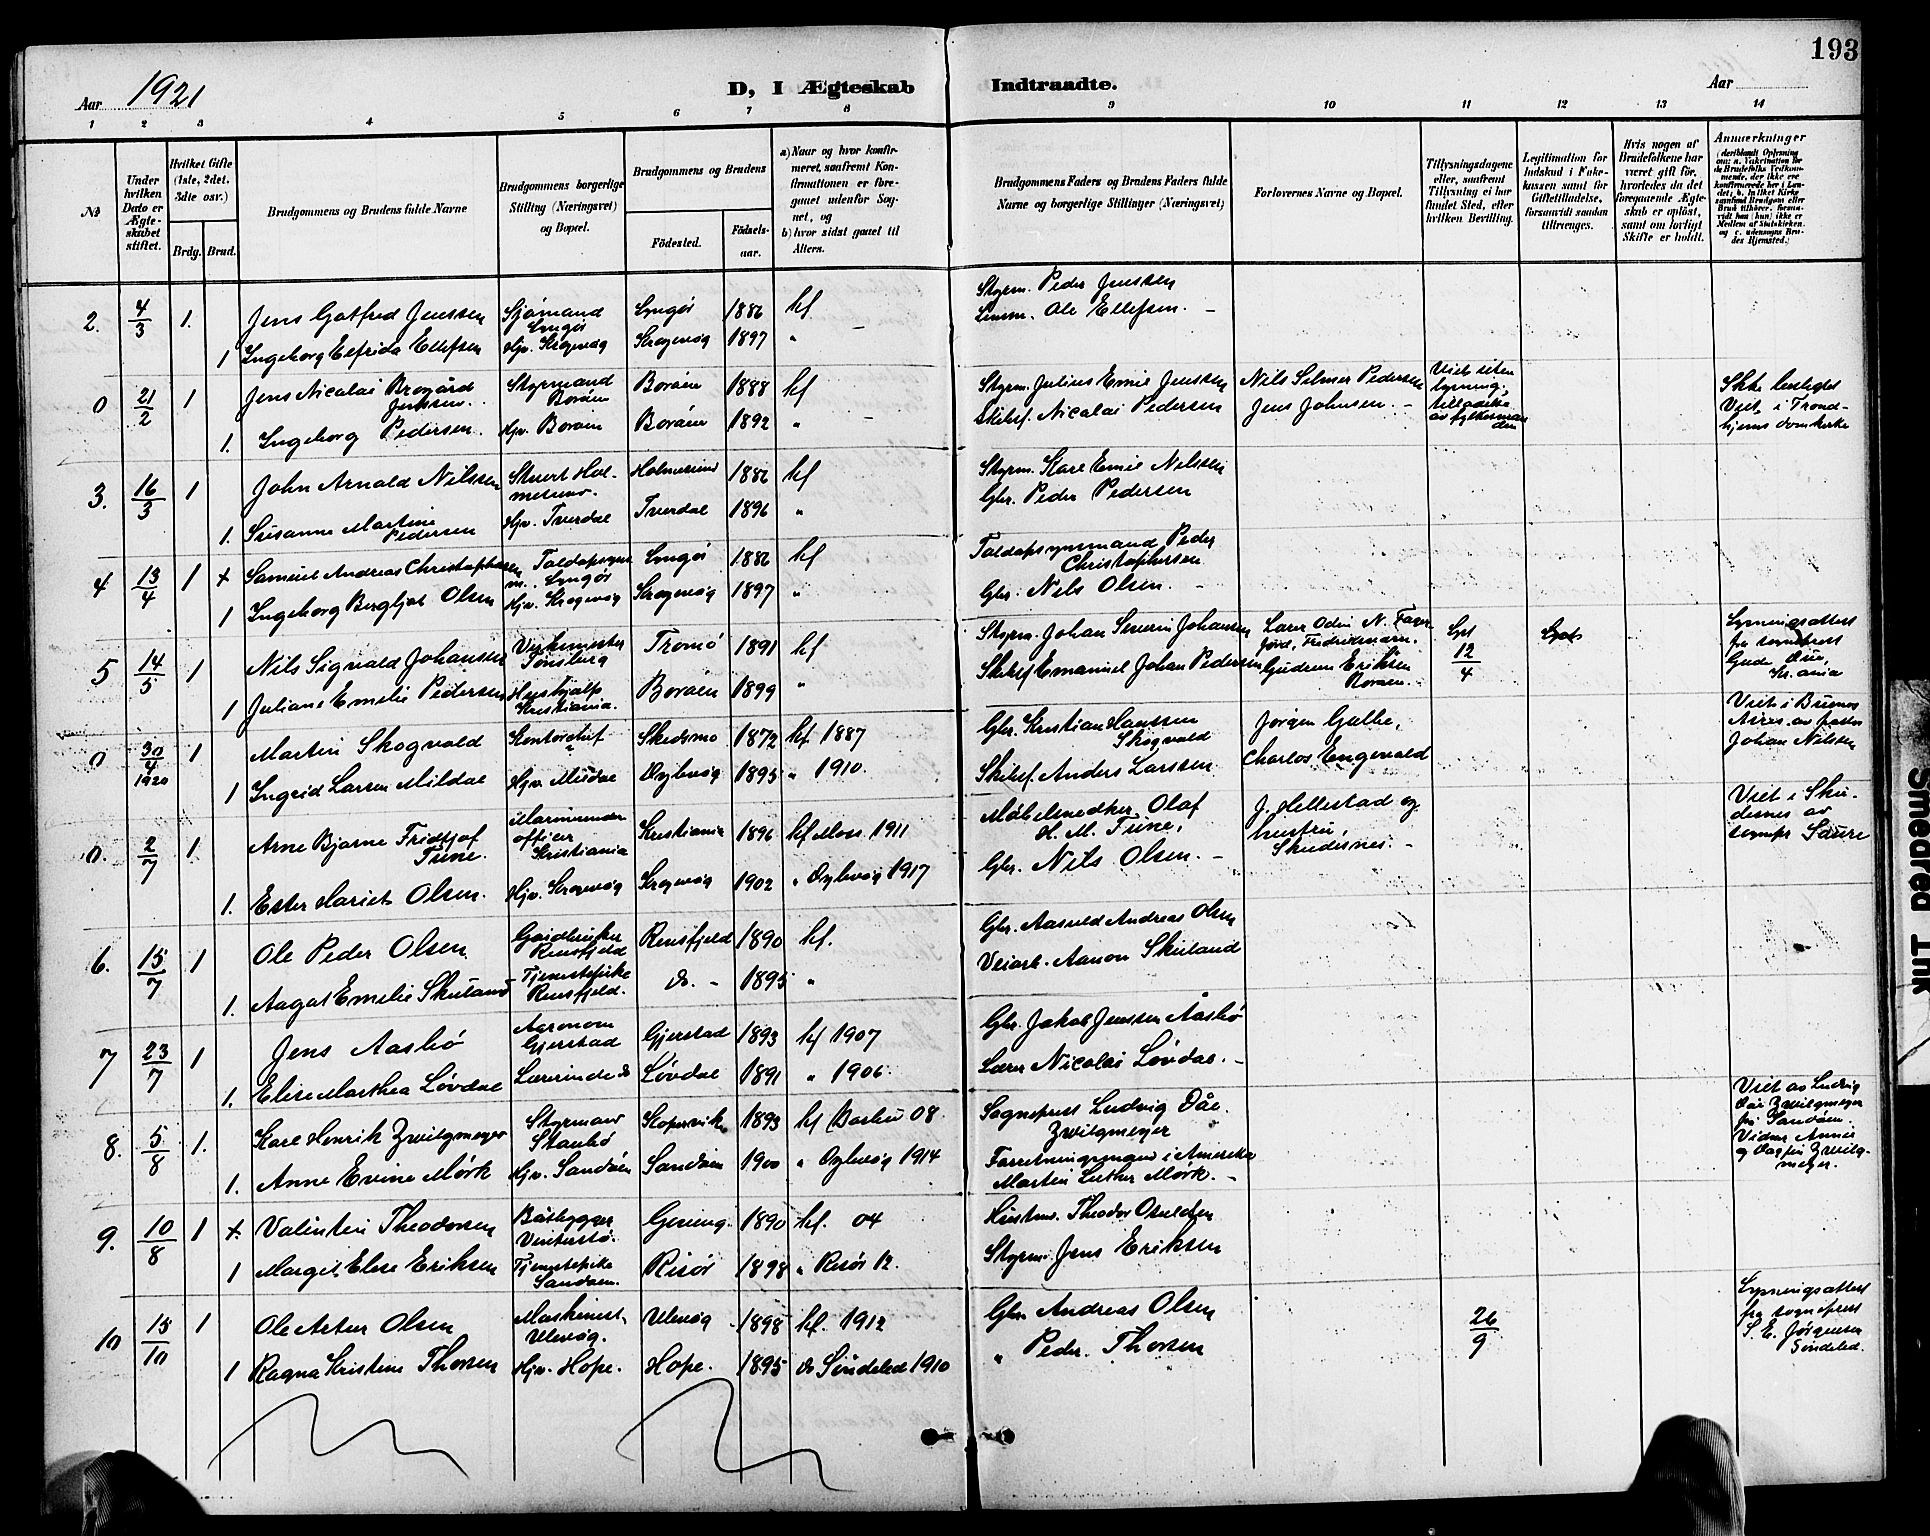 193
Aar 1921
D, I Ægteskab Indtraadte.
Aar
1 2 3 4 5 6 7 8 9 10 11 12 13 14
No
Under hvilken Dato er Ægteskabet stiftet.
Hvilket Gifte (1ste, 2det, 3die osv.)
Brdg. Brud.
Brudgommens og Brudens fulde Navne
Brudgommens borgerlige Stilling (Næringsvei) og Bopæl.
Brudgommens og Brudens
Fødested.
Fødselsaar.
a) Naar og hvor konfirmeret, saafremt Konfirmationen er foregaaet udenfor Sognet, og
b) hvor sidst gaaet til Alters.
Brudgommens Faders og Brudens Faders fulde Navne og borgerlige Stillinger (Næringsvei)
Forlovernes Navne og Bopæl.
Tillysningsdagene eller, saafremt Tillysning ei har fundet Sted, efter hvilken Bevilling.
Legitimation for Indskud i Enkekassen samt for Giftetilladelse, forsaavidt saadan tiltrænges.
Hvis nogen af Brudefolkene har været gift før, hvorledes da det foregaaende Ægteskab er opløst, samt om lovligt Skifte er holdt.
Anmærkninger
2. 4/3 1. Jens Gotfred Jenssen Sjømand Lyngør Lyngør 1886 kf Styrm. Peder Jenssen
1 Ingeborg Elfrida Ellefsen Hjv. Krogevåg Krogevåg 1897 " Ole Ellefsen.
0 21/2 1 Jens Nicolai Jenssen. Styrmand Borøen Borøen 1888 kf Styrm. Julius Emil Jenssen Nils Selmer Pedersen Viet uten lysning, tilladelse av fylkesmanden Ikke lyslyst Viet i Trondhjems domkirke
1. Ingeborg Pedersen. Hjv. Borøen Borøen 1892 " Skibsf. Nicolai Pedersen Jens Johnsen.
3. 16/3 1 John Arnold Nilssen Stuert Holmesund. Holmesund 1886 kf Styrm. Kare Emil Nilssen
1. Susanne Martine Pedersen Hjv. Tverdal Tverdal 1896 " Gbr. Peder Pedersen
4 13/4 1 + Samuel Andreas Christophersen Toldopsynsm. Lyngør Lyngør 1886 kf Toldopsynsmand Peder Christophersen
1 Ingeborg Bergljot Olsen Hjv. Krogevåg Krogevåg 1897 " Gbr. Nils Olsen.
5 14/5 1 Nils Sigvald Johansen Verksmester Tønsberg Tromø 1891 kf Styrm. Johan Severin Johansen Fredriksværn. Lyst 12/4 Lyst Lysningsattest fra sogneprest Gude Due, Kr.ania
1 Juliane Emelie Pedersen Hushjælp Kristiania. Borøen 1899 " Skibsf Emanuel Johan Pedersen Gudrun Eriksen Borøen.
0 30/4 1920 1 Martin Skogvald Kontorchef Skedsmo 1872 kf 1887 Gbr. Kristian Hanssen Skogvald Jørgen Galbe, Viet i Buenos Aires av pastor Johan Nilssen
1 Ingrid Larsen Mildal Hjv. Mildal Dybvåg 1895 " 1910. Skibsf. Anders Larssen Charlos Engevald
0. 2/7 1. Arne Bjarne Fridtjof Tune. Marineunderofficer Kristiania Kristiania 1896 kf Moss 1911 Møbelsnedker Olaf H. M. Tune, J. Hellestad og hustru, Skudesnes. Viet i Skudesnes av sognepr Saure
1. Ester Hariet Olsen. Hjv. Krogevåg Krogevåg 1902 " Dybvåg 1917 Gbr. Nils Olsen.
6. 15/7 1 Ole Peder Olsen Gårdbruker Rensfjeld Rensfjeld 1890 kf. Gbr. Aasuld Andreas Olsen
1. Aagot Emelie Skuland Tjenestepike Rensfjeld. do. 1895 " Veiarb. Aanon Skuland
7 23/7 1 Jens Aasbø Agronom Gjerstad Gjerstad 1893 kf 1907 Gbr. Jakob Jenssen Åasbø
1. Elise Marthea Løvdal Lærerinde do Løvdal 1891 " 1906. Lærer Nicolai Løvdal.
8. 5/8 1. Kare Henrik Zwilgmeyer Styrmann Staubø Kopervik 1893 kf Barbu 08. Sogneprest Ludvig Dåe Zwilgmeyer Viet av Ludvig Dåe Zwilgmeyer på Sandøen. Vidner Annie og Dagfin Zwilgmeyer.
1. Anne Evine Mørk Hjv. Sandøen Sandøen 1900 " Dybvåg 1914 Forretningsmann i Amerika Martin Luther Mørk.
9. 10/8 1 + Valentin Theodorsen Båtbygger Vinterstø. Gjeving. 1890 kf. 04 Theodor Osuldsen
1 Margit Elise Eriksen Tjenestepike Sandøen. Risør 1898 " Risør 12. Styrm. Jens Eriksen
10 15/10 1 Ole Artur Olsen Maskinist Ulevåg. Ulevåg 1898 kf. 1912 Gbr. Andreas Olsen 26/9 Lysningsattest fra sogneprest S. E. Jørgensen Søndeled.
1 Ragna Kristine Thorsen Hjv. Hope. Hope. 1895 do Søndeled 1910 " Peder Thorsen
Smedred Ink